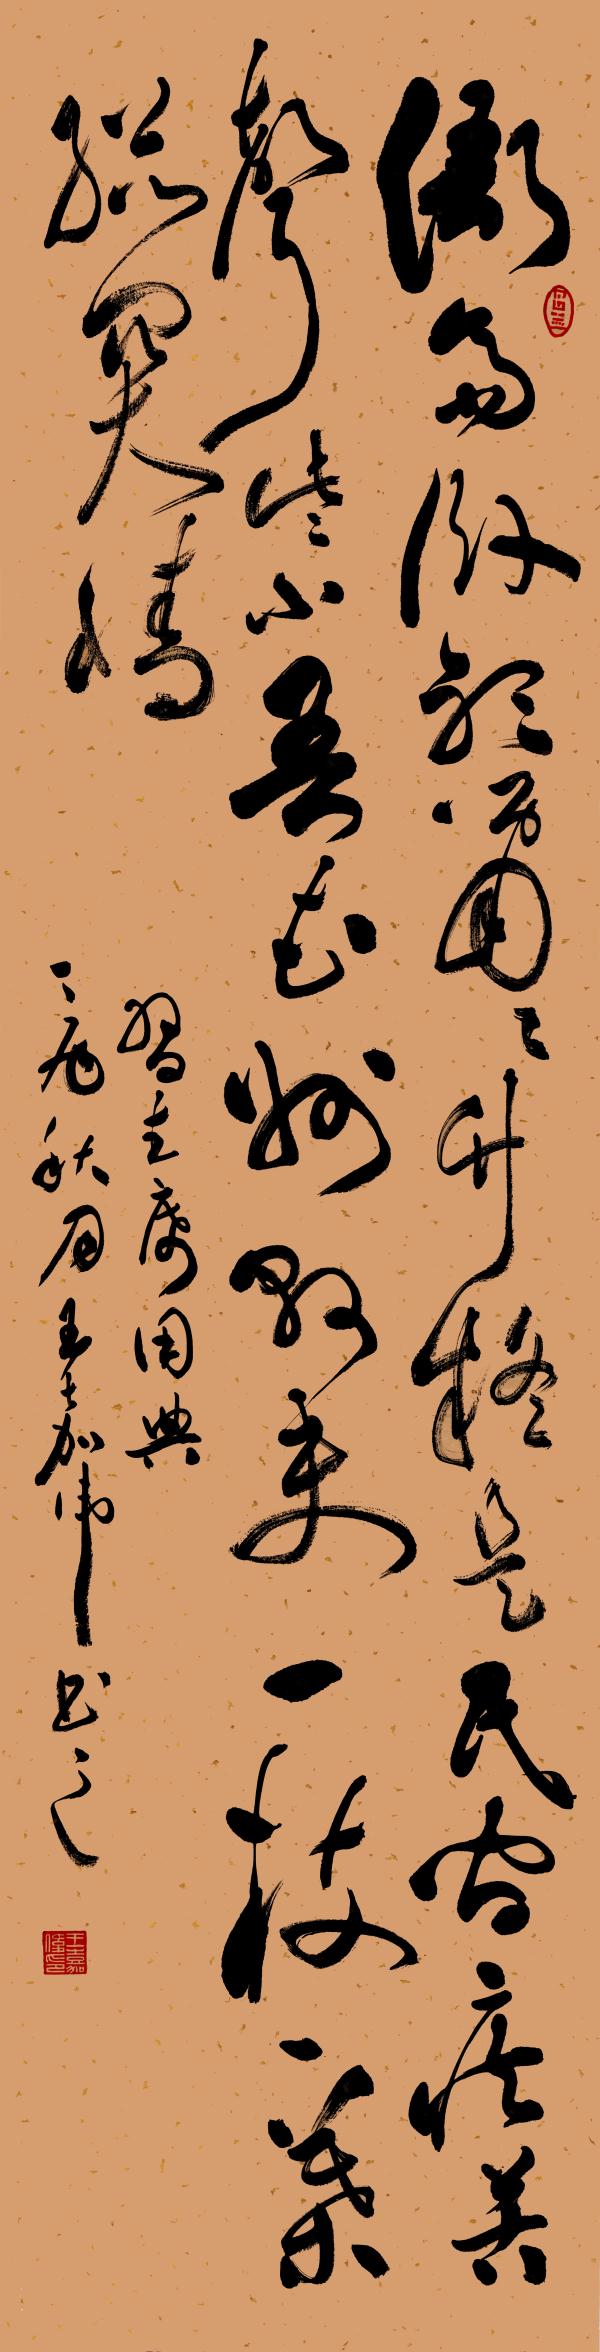 衙齋臥聽蕭〻竹疑是民間疾苦
聲些小吾曹州縣吏一枝一葉
總關情
習主席用典
秋月王嘉偉书之
王嘉偉印